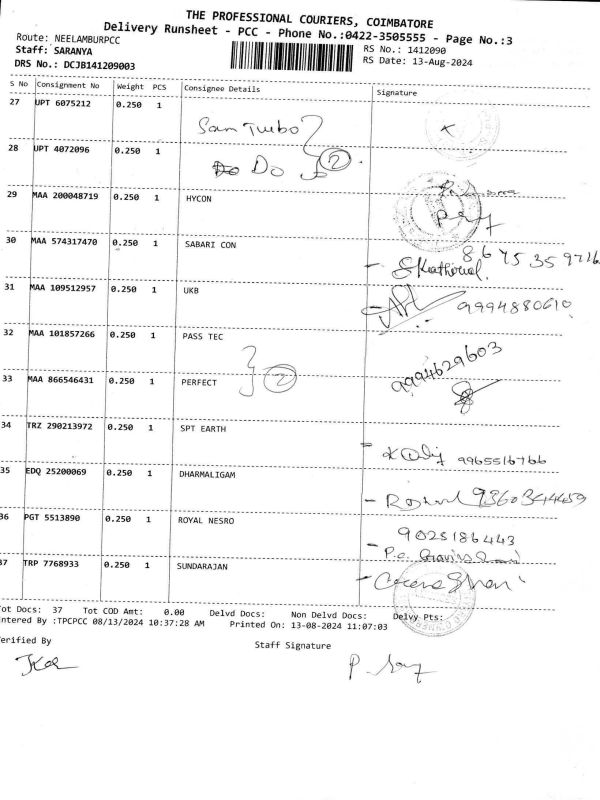 THE PROFESSIONAL COURIERS, COIMBATORE
Delivery Runsheet - PCC - Phone No.:0422-3505555 - Page No.:3
Route: NEELAMBURPCC RS No.: 1412090
Staff: SARANYA RS Date: 13-Aug-2024
DRS No.: DCJB141209003
S No Consignment No Weight PCS Consignee Details Signature
27 UPT 6075212 0.250 1 Sam Turbo
28 UPT 4072096 0.250 1 Do 2
29 MAA 200048719 0.250 1 HYCON
30 MAA 574317470 0.250 1 SABARI CON 8675359716
31 MAA 109512957 0.250 1 UKB 9994880610
32 MAA 101857266 0.250 1 PASS TEC 9994629603
33 MAA 866546431 0.250 1 PERFECT 2
34 TRZ 290213972 0.250 1 SPT EARTH 9965516766
35 EDQ 25200069 0.250 1 DHARMALIGAM 9360344459
36 PGT 5513890 0.250 1 ROYAL NESRO 9025186443
37 TRP 7768933 0.250 1 SUNDARAJAN
Tot Docs: 37 Tot COD Amt: 0.00 Delvd Docs: Non Delvd Docs: Delvy Pts:
Entered By :TPCPCC 08/13/2024 10:37:28 AM Printed On: 13-08-2024 11:07:03
Verified By Staff Signature